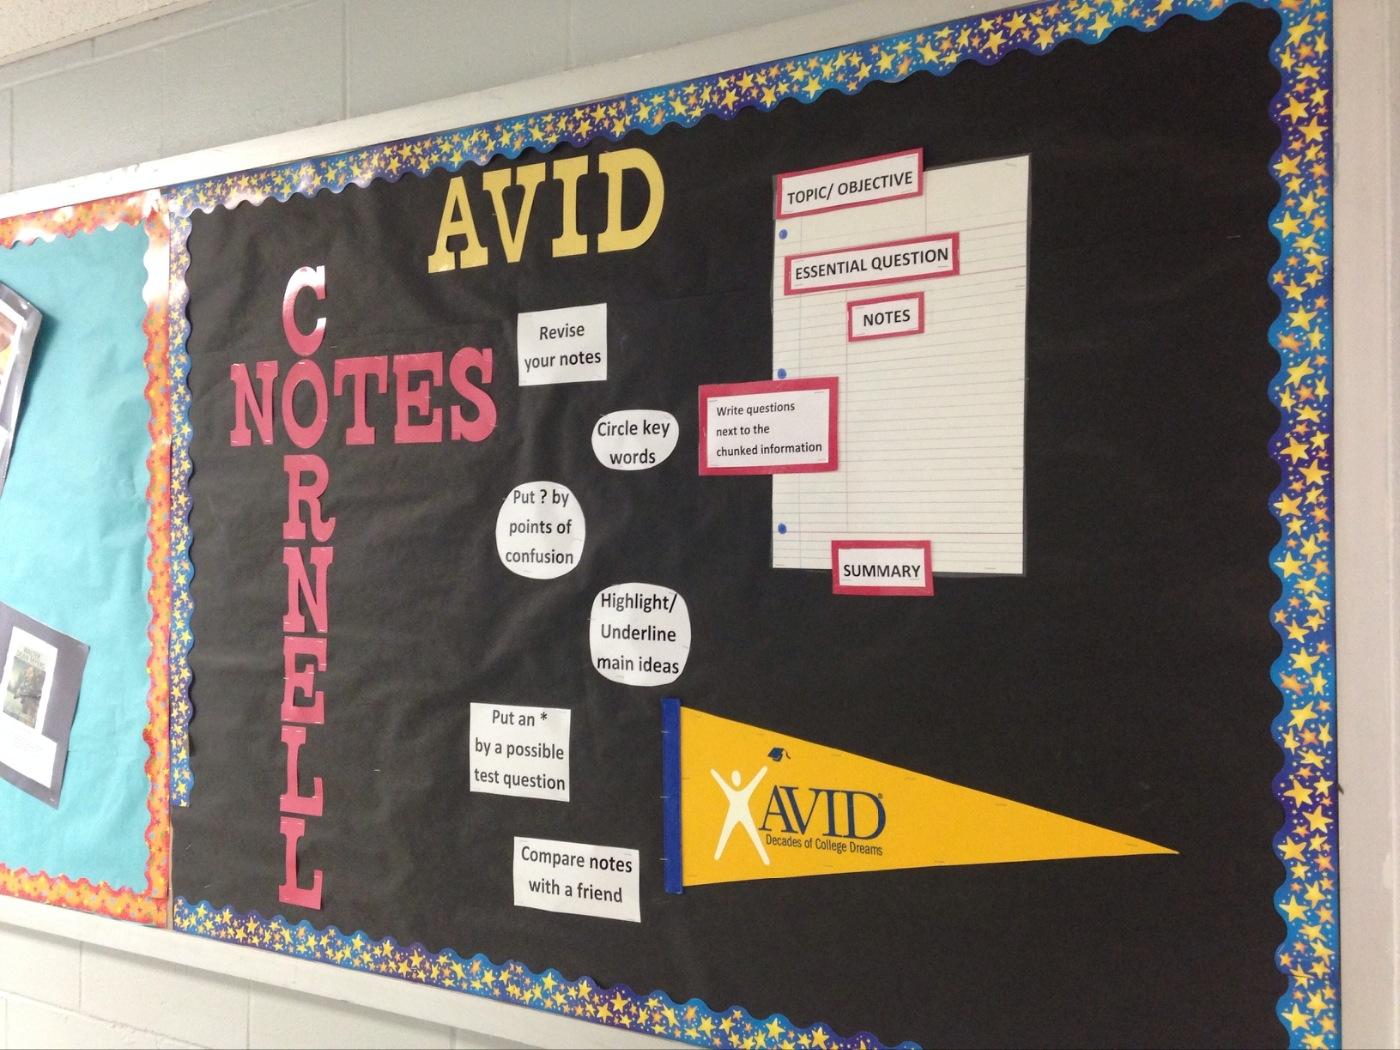 AVID
CORNELL
NOTES
Revise
your notes
Circle key
words
Put ? by
points of
confusion
Highlight/
Underline
main ideas
Put an *
by a possible
test question
Compare notes
with a friend
TOPIC/ OBJECTIVE
ESSENTIAL QUESTION
NOTES
Write questions
next to the
chunked information
SUMMARY
AVID®
Decades of College Dreams